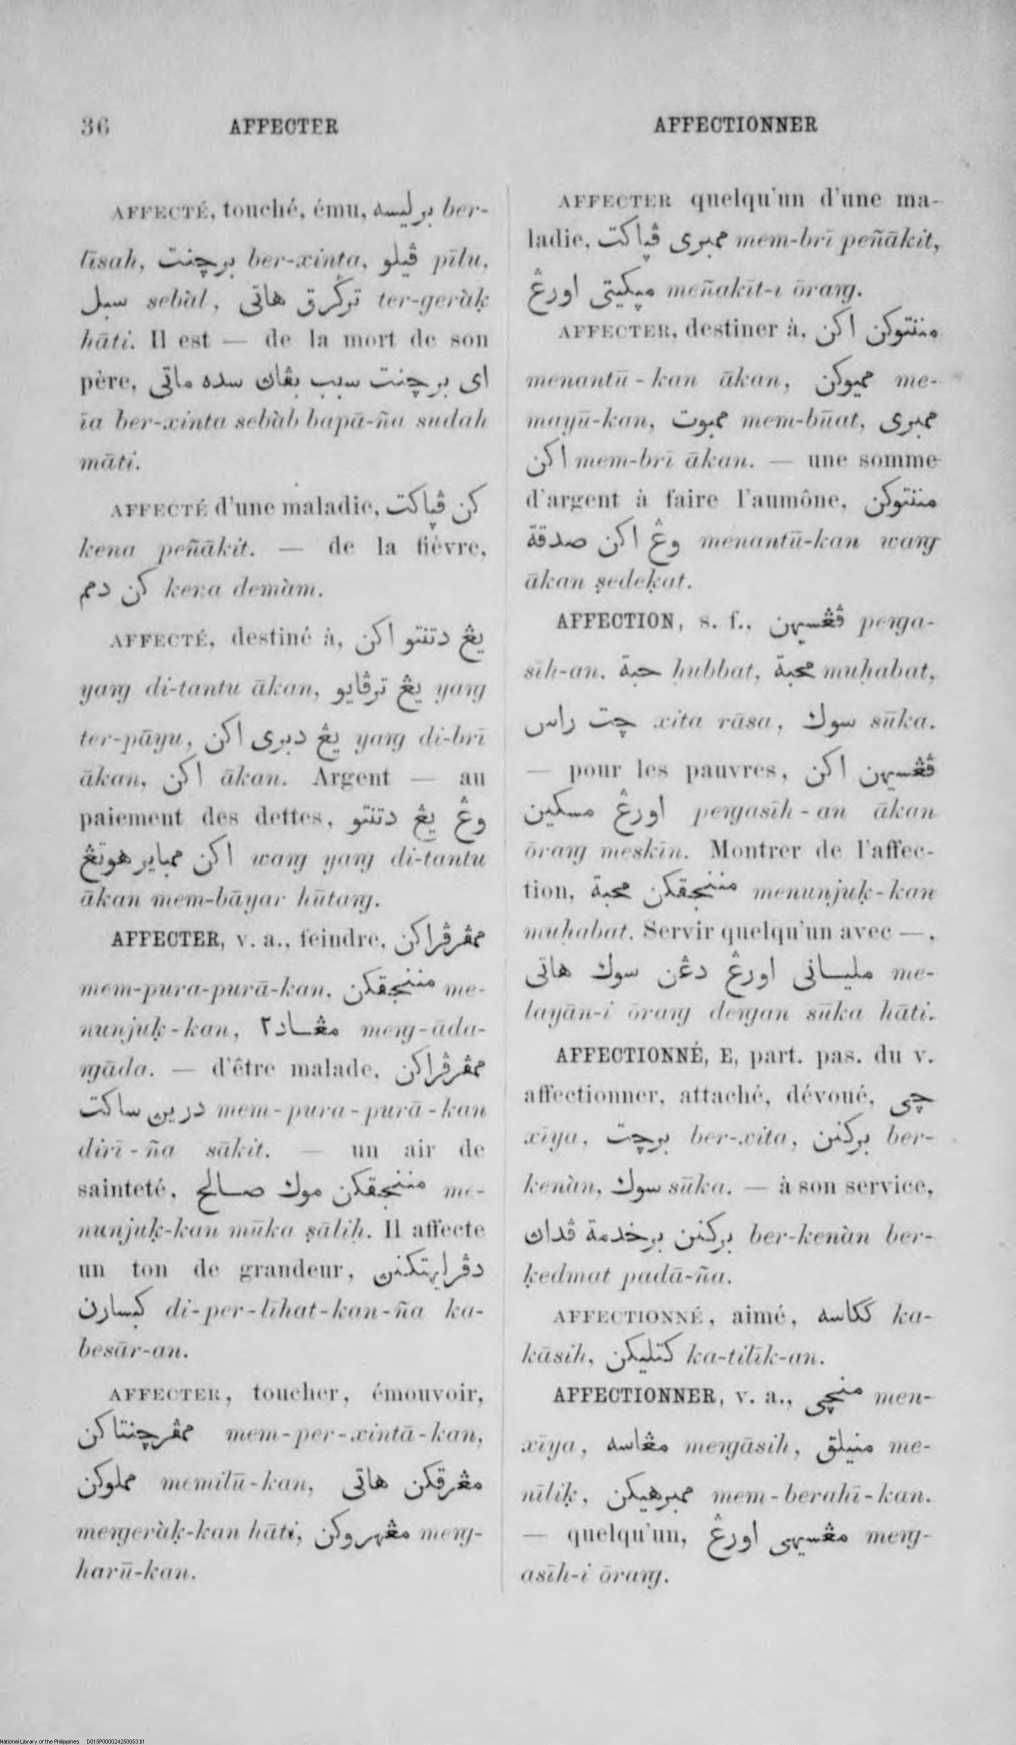 36 AFFECTER AFFECTIONNER
AFFECTÉ, touché, ému, برليسه ber-
līsah, برچنت ber-xinta, ڤيلو pīlu,
سبل sebàl, ترڬرق هاتى ter-geràḳ
hāti. Il est — de la mort de son
père, اى برچنت سبب بڤاڽ سده ماتى
īa ber-xinta sebàb bapā-ña sudah
māti.
AFFECTÉ d'une maladie, كن ڤڽاكت
kena peñākit. — de la fièvre,
كن دمم kena demàm.
AFFECTÉ, destiné à, يڠ دتنتو اكن
yaŋ di-tantu ākan, يڠ ترڤايو yaŋ
ter-pāyu, يڠ دبرى اكن yaŋ di-brī
ākan, اكن ākan. Argent — au
paiement des dettes, وڠ يڠ دتنتو
اكن ممباير هوتڠ waŋ yaŋ di-tantu
ākan mem-bāyar hūtaŋ.
AFFECTER, v. a., feindre, ممڤرڤراكن
mem-pura-purā-kan, مننجقكن me-
nunjuḳ-kan, مڠاد٢ meŋ-āda-
ŋāda. — d'être malade, ممڤرڤراكن
درين ساكت mem-pura-purā-kan
dirī-ña sākit. — un air de
sainteté, مننجقكن موك صالح me-
nunjuḳ-kan mūka ṣāliḥ. Il affecte
un ton de grandeur, دڤرليهتكنڽ
كبسارن di-per-līhat-kan-ña ka-
besār-an.
AFFECTER, toucher, émouvoir,
ممڤرچنتاكن mem-per-xintā-kan,
مملوكن memilū-kan, مڠرقكن هاتى
meŋgeràḳ-kan hāti, مڠهروكن meŋ-
harū-kan.
AFFECTER quelqu'un d'une ma-
ladie, ممبرى ڤڽاكت mem-brī peñākit,
مڽكيتى اورڠ meñakīt-i ōraŋ.
AFFECTER, destiner à, مننتوكن اكن
menantū-kan ākan, مميوكن me-
mayū-kan, ممبوت mem-būat, ممبرى
اكن mem-brī ākan. — une somme
d'argent à faire l'aumône, مننتوكن
وڠ اكن صدقة menantū-kan waŋ
ākan ṣedeḳat.
AFFECTION, s. f., ڤڠسيهن peŋga-
sīh-an, حبة ḥubbat, محبة muḥabat,
چت راس xita rāsa, سوك sūka.
— pour les pauvres, ڤڠسيهن اكن
اورڠ مسكين peŋgasīh-an ākan
ōraŋ meskīn. Montrer de l'affec-
tion, مننجقكن محبة menunjuḳ-kan
muḥabat. Servir quelqu'un avec —,
مليانى اورڠ دڠن سوك هاتى me-
layān-i ōraŋ deŋan sūka hāti.
AFFECTIONNÉ, E, part. pas. du v.
affectionner, attaché, dévoué, چى
xīya, برچت ber-xita, بركنن ber-
kenàn, سوك sūka. — à son service,
بركنن برخدمة ڤداڽ ber-kenàn ber-
ḳedmat padā-ña.
AFFECTIONNÉ, aimé, ككاسه ka-
kāsih, كتليكن ka-tilīk-an.
AFFECTIONNER, v. a., منچى men-
xīya, مڠاسه meŋāsih, منيلق me-
nīliḳ, ممبرهيكن mem-berahī-kan.
— quelqu'un, مڠسيهى اورڠ meŋ-
asīh-i ōraŋ.
National Library of the Philippines